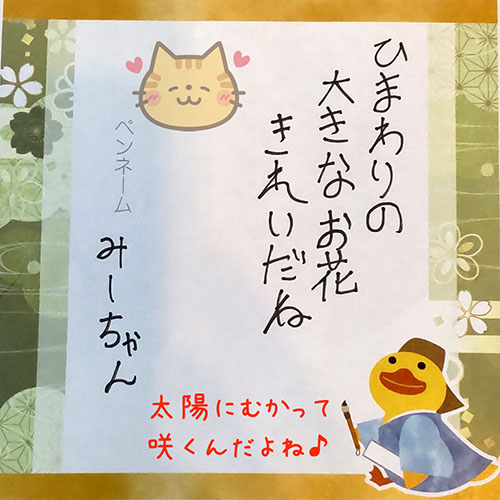 ひまわりの
大きなお花
きれいだね
ペンネーム
みーちゃん
太陽にむかって
咲くんだよね♪